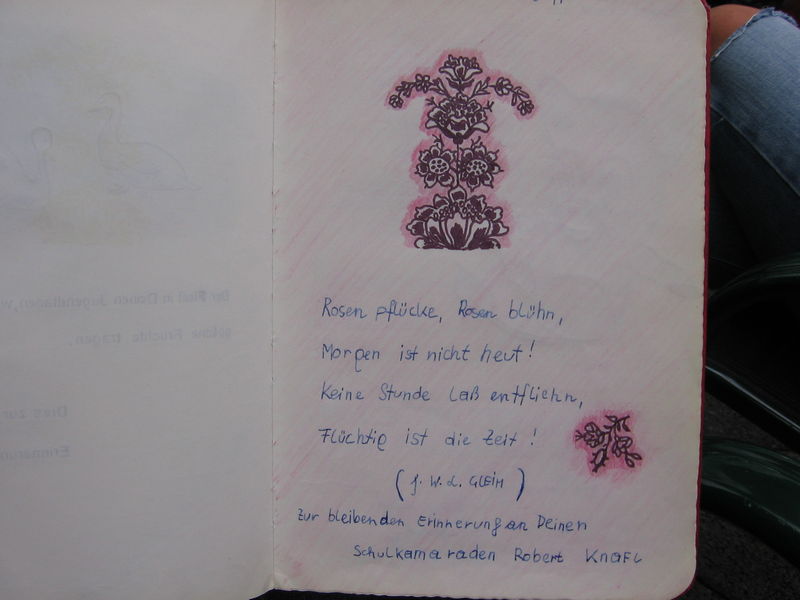 Rosen pflücke, Rosen blühn,
Morgen ist nicht heut!
Keine Stunde laß entfliehn,
Flüchtig ist die Zeit!
(J. W. L. GLEIM)
Zur bleibenden Erinnerung an Deinen
Schulkamaraden Robert Knafl